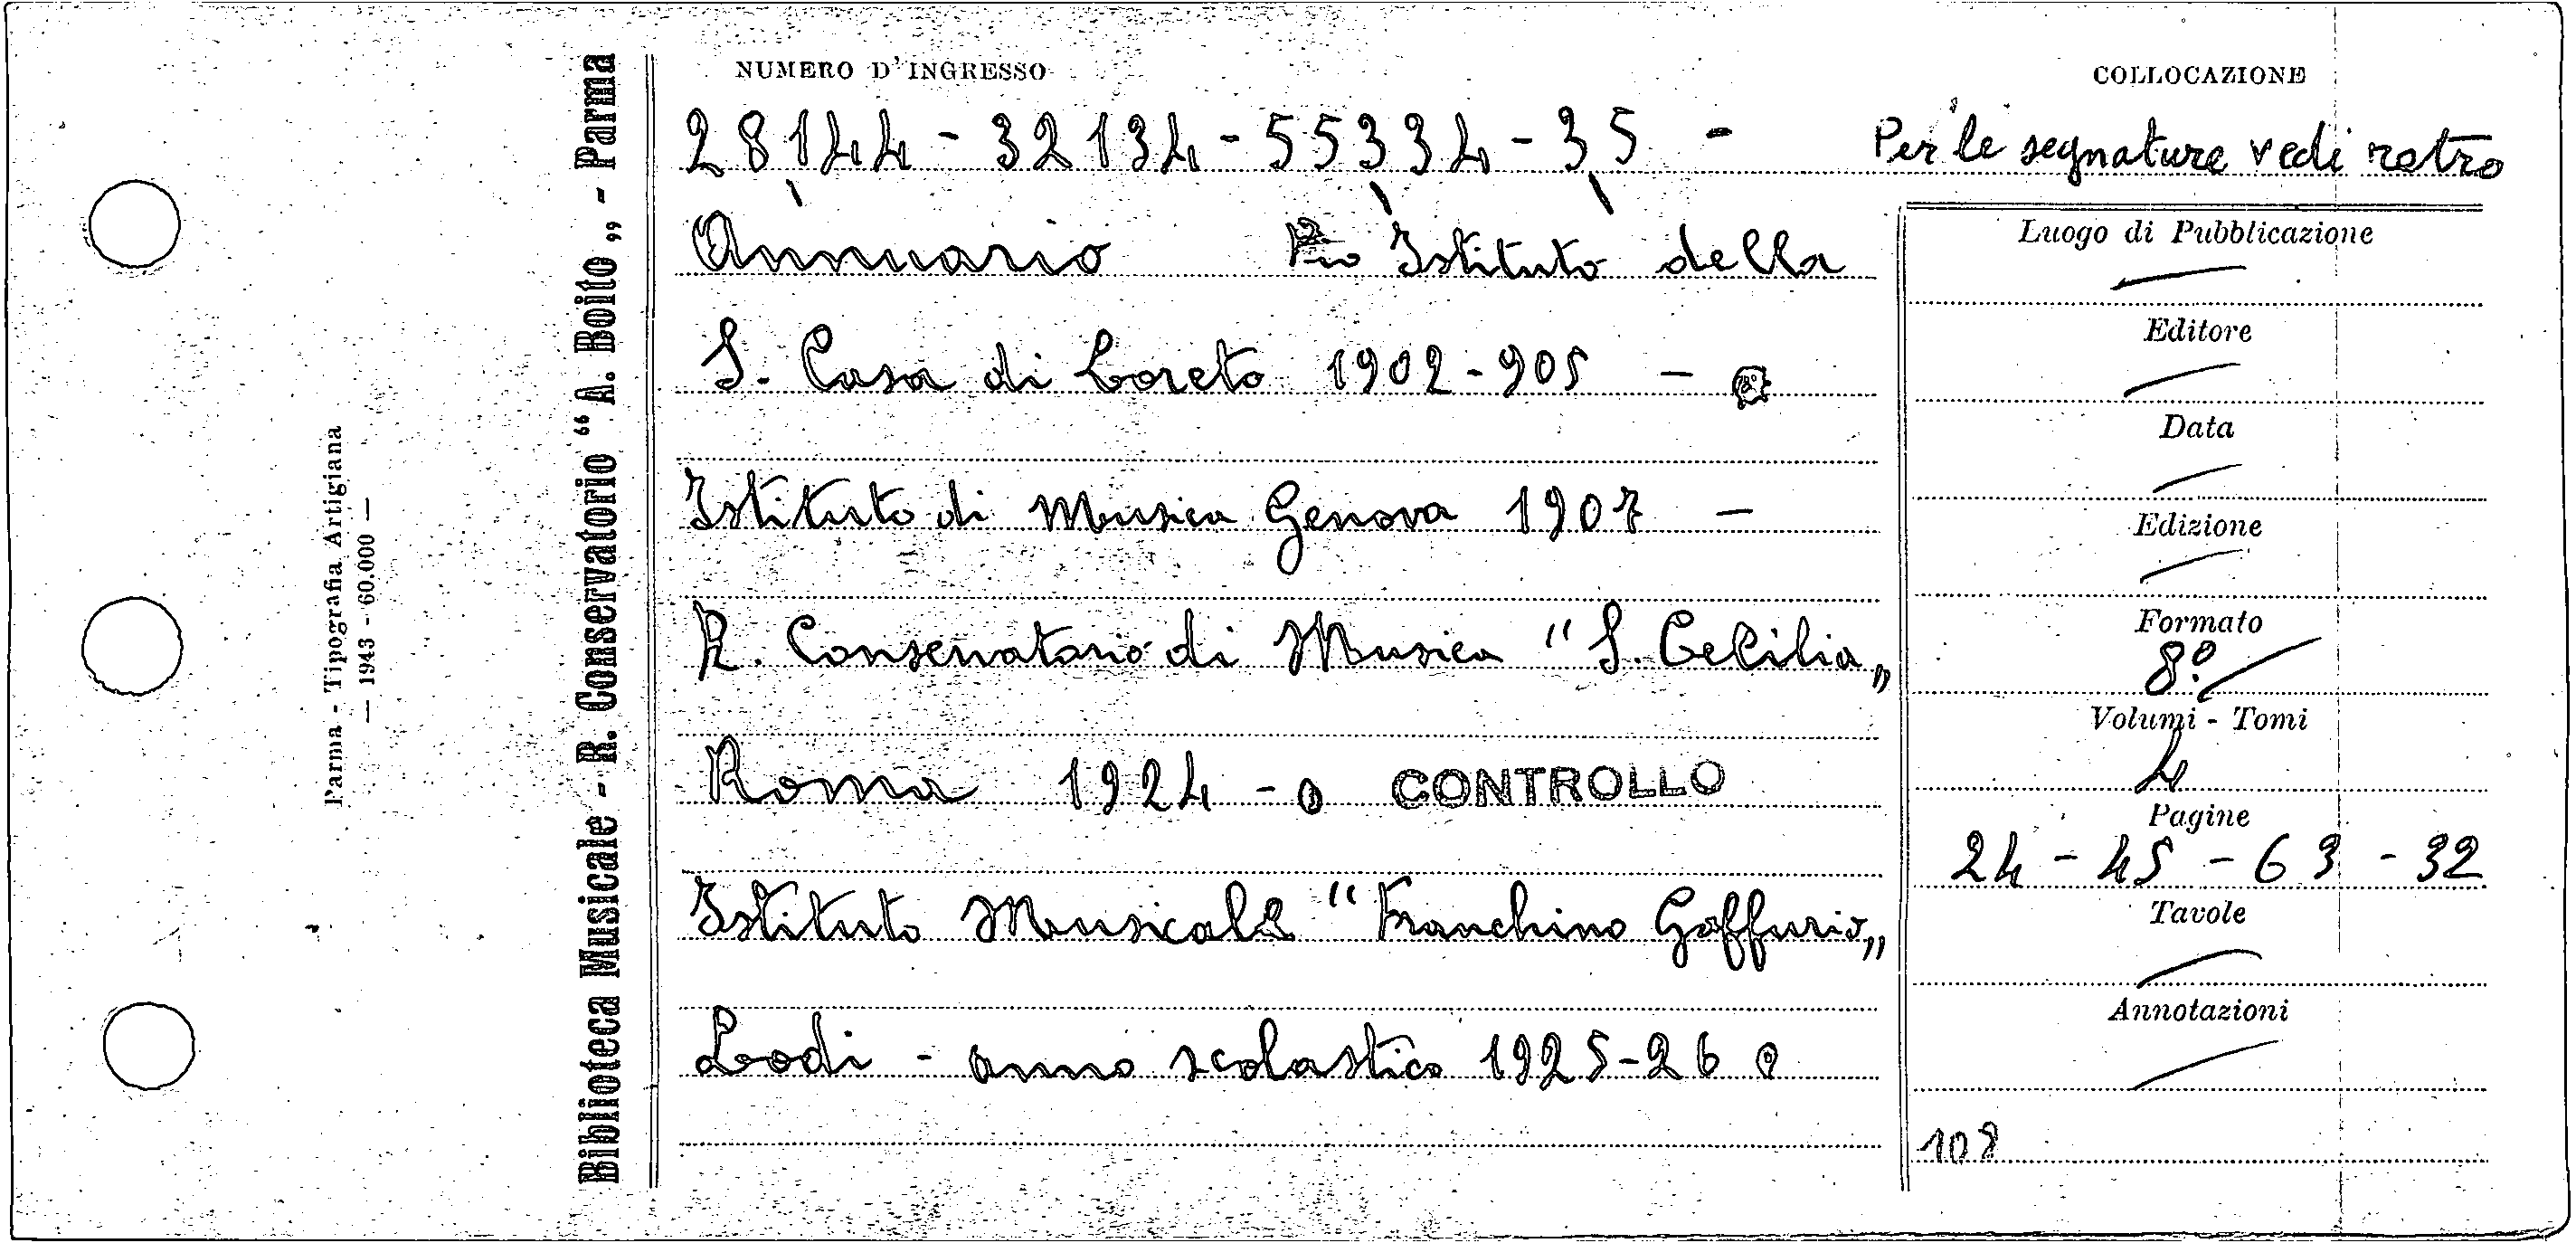 NUMERO D'INGRESSO
COLLOCAZIONE
28144 - 32134 - 55334 - 35 -
Per le segnature vedi retro
Annuario Pio Istituto della
S. Casa di Loreto 1902-905 -
Istituto di Musica Genova 1907 -
R. Conservatorio di Musica "S. Cecilia„
Roma 1924 - CONTROLLO
Istituto Musicale "Franchino Gaffurio„
Lodi - anno scolastico 1925-26
Luogo di Pubblicazione
Editore
Data
Edizione
Formato
8º
Volumi - Tomi
4
Pagine
24 - 45 - 63 - 32
Tavole
Annotazioni
108
Biblioteca Musicale - R. Conservatorio "A. Boito„ - Parma
Parma - Tipografia Artigiana
— 1943 - 60.000 —